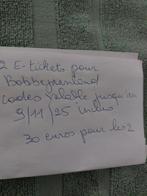 2 E-tickets pour
Bobbejaanland
codes valable jusqu'au
9/11/25 inclus
30 euros pour les 2